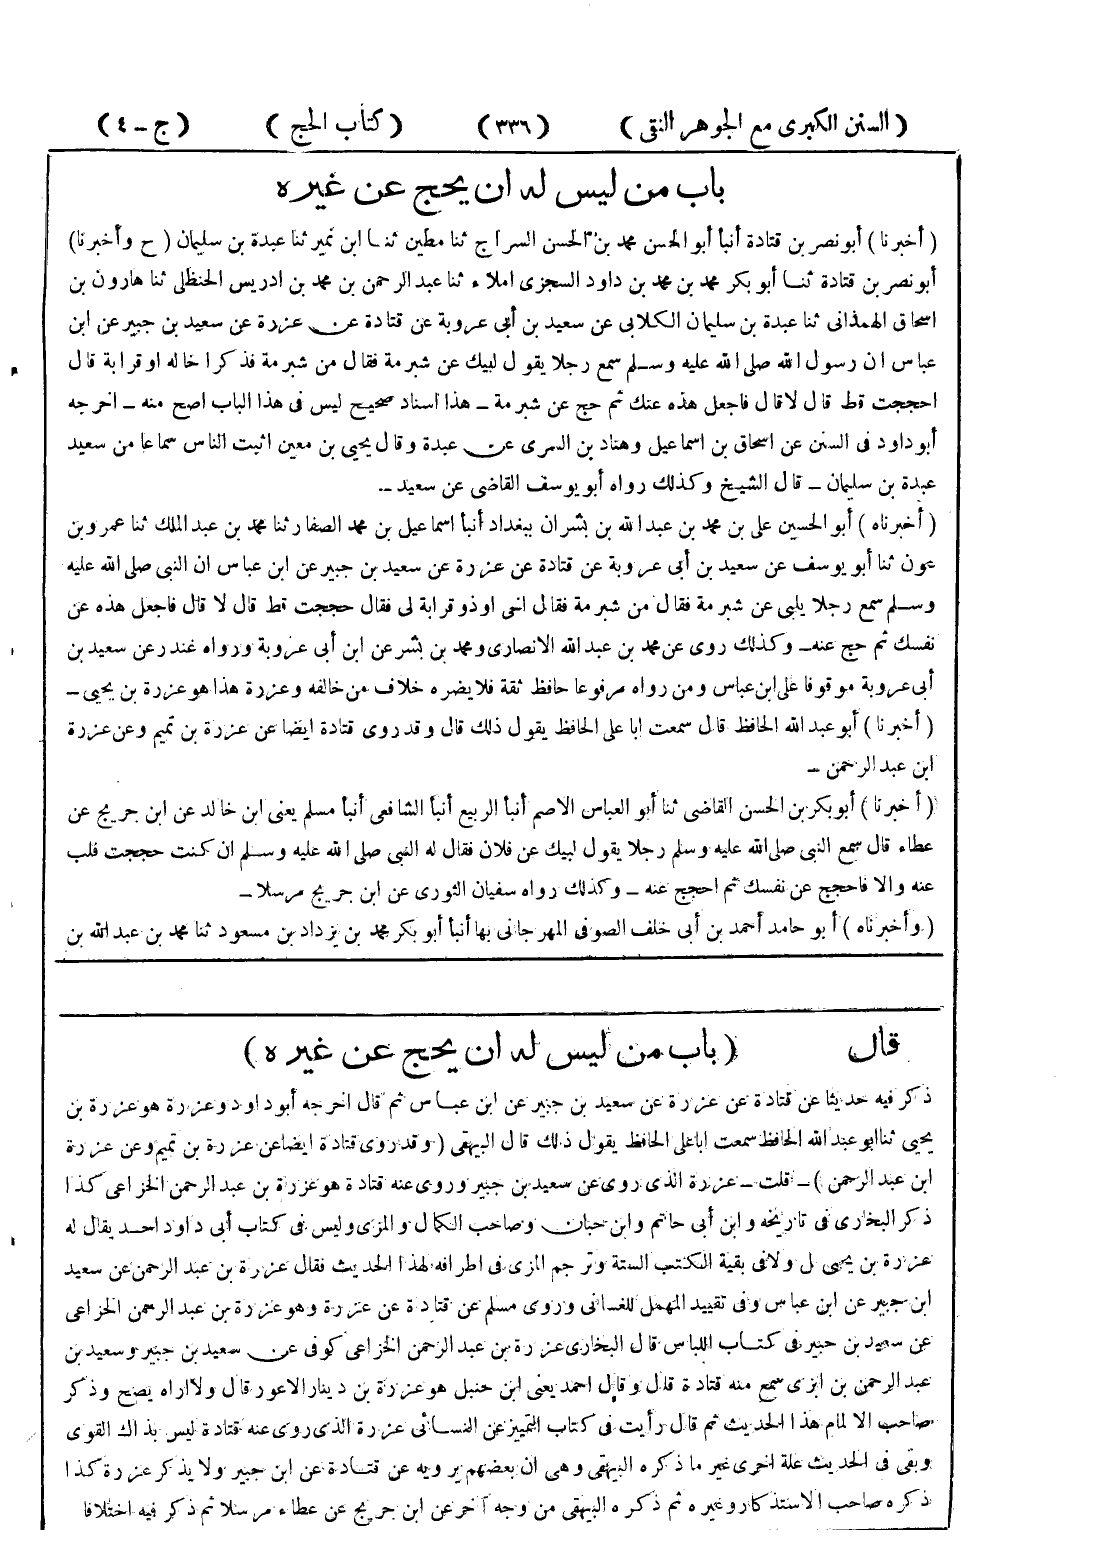 ( السنن الكبرى مع الجوهر النقى ) ( ٣٣٦ ) ( كتاب الحج ) ( ج - ٤ )
باب من ليس له ان يحج عن غيره
( أخبرنا ) أبو نصر بن قتادة أنبأ أبو الحسن محمد بن الحسن السراج ثنا مطين ثنا ابن نمير ثنا عبدة بن سليمان ( ح وأخبرنا )
أبو نصر بن قتادة ثنا أبو بكر محمد بن محمد بن داود السجزى املاء ثنا عبد الرحمن بن محمد بن ادريس الحنظلى ثنا هارون بن
اسحاق الهمذانى ثنا عبدة بن سليمان الكلابى عن سعيد بن أبى عروبة عن قتادة عن عزرة عن سعيد بن جبير عن ابن
عباس ان رسول الله صلى الله عليه وسلم سمع رجلا يقول لبيك عن شبرمة فقال من شبرمة فذكر اخا له او قرابة قال
احججت قط قال لا قال فاجعل هذه عنك ثم حج عن شبرمة - هذا اسناد صحيح ليس فى هذا الباب اصح منه - اخرجه
أبو داود فى السنن عن اسحاق بن اسماعيل وهناد بن السرى عن عبدة وقال يحيى بن معين اثبت الناس سماعا من سعيد
عبدة بن سليمان - قال الشيخ وكذلك رواه أبو يوسف القاضى عن سعيد --
( أخبرناه ) أبو الحسين على بن محمد بن عبد الله بن بشران ببغداد أنبأ اسماعيل بن محمد الصفار ثنا محمد بن عبد الملك ثنا عمرو بن
عون ثنا أبو يوسف عن سعيد بن أبى عروبة عن قتادة عن عزرة عن سعيد بن جبير عن ابن عباس ان النبى صلى الله عليه
وسلم سمع رجلا يلبى عن شبرمة فقال من شبرمة فقال اخى او ذو قرابة لى فقال حججت قط قال لا قال فاجعل هذه عن
نفسك ثم حج عنه - وكذلك روى عن محمد بن عبد الله الانصارى ومحمد بن بشر عن ابن أبى عروبة ورواه غندر عن سعيد بن
أبى عروبة موقوفا على ابن عباس ومن رواه مرفوعا حافظ ثقة فلا يضره خلاف من خالفه وعزرة هذا هو عزرة بن يحيى -
( أخبرنا ) أبو عبد الله الحافظ قال سمعت ابا على الحافظ يقول ذلك قال وقد روى قتادة ايضا عن عزرة بن تميم وعن عزرة
ابن عبد الرحمن -
( أخبرنا ) أبو بكر بن الحسن القاضى ثنا أبو العباس الاصم أنبأ الربيع أنبأ الشافعى أنبأ مسلم يعنى ابن خالد عن ابن جريج عن
عطاء قال سمع النبى صلى الله عليه وسلم رجلا يقول لبيك عن فلان فقال له النبى صلى الله عليه وسلم ان كنت حججت فلب
عنه والا فاحجج عن نفسك ثم احجج عنه - وكذلك رواه سفيان الثورى عن ابن جريج مرسلا -
( وأخبرناه ) أبو حامد أحمد بن أبى خلف الصوفى المهرجانى بها أنبأ أبو بكر محمد بن يزداد بن مسعود ثنا محمد بن عبد الله بن
قال ( باب من ليس له ان يحج عن غيره )
ذكر فيه حديثا عن قتادة عن عزرة عن سعيد بن جبير عن ابن عباس ثم قال اخرجه أبو داود وعزرة هو عزرة بن
يحيى ثنا ابو عبد الله الحافظ سمعت ابا على الحافظ يقول ذلك قال البيهقى ( وقد روى قتادة ايضا عن عزرة بن تميم وعن عزرة
ابن عبد الرحمن ) - قلت - عزرة الذى روى عن سعيد بن جبير وروى عنه قتادة هو عزرة بن عبد الرحمن الخزاعى كذا
ذكر البخارى فى تاريخه وابن أبى حاتم وابن حبان وصاحب الكمال والمزى وليس فى كتاب أبى داود احد يقال له
عزرة بن يحيى بل ولا فى بقية الكتب الستة وترجم المزى فى اطرافه لهذا الحديث فقال عزرة بن عبد الرحمن عن سعيد
ابن جبير عن ابن عباس وفى تقييد المهمل للغسانى وروى مسلم عن قتادة عن عزرة وهو عزرة بن عبد الرحمن الخزاعى
عن سعيد بن جبير فى كتاب اللباس قال البخارى عزرة بن عبد الرحمن الخزاعى كوفى عن سعيد بن جبير وسعيد بن
عبد الرحمن بن ابزى سمع منه قتادة قال وقال احمد يعنى ابن حنبل هو عزرة بن دينار الاعور قال ولا اراه يصح وذكر
صاحب الالمام هذا الحديث ثم قال رأيت فى كتاب التمييز عن النسائى عزرة الذى روى عنه قتادة ليس بذاك القوى
وبقى فى الحديث علة اخرى غير ما ذكره البيهقى وهى ان بعضهم يرويه عن قتادة عن ابن جبير ولا يذكر عزرة كذا
ذكره صاحب الاستذكار وغيره ثم ذكره البيهقى من وجه آخر عن ابن جريج عن عطاء مرسلا ثم ذكر فيه اختلافا